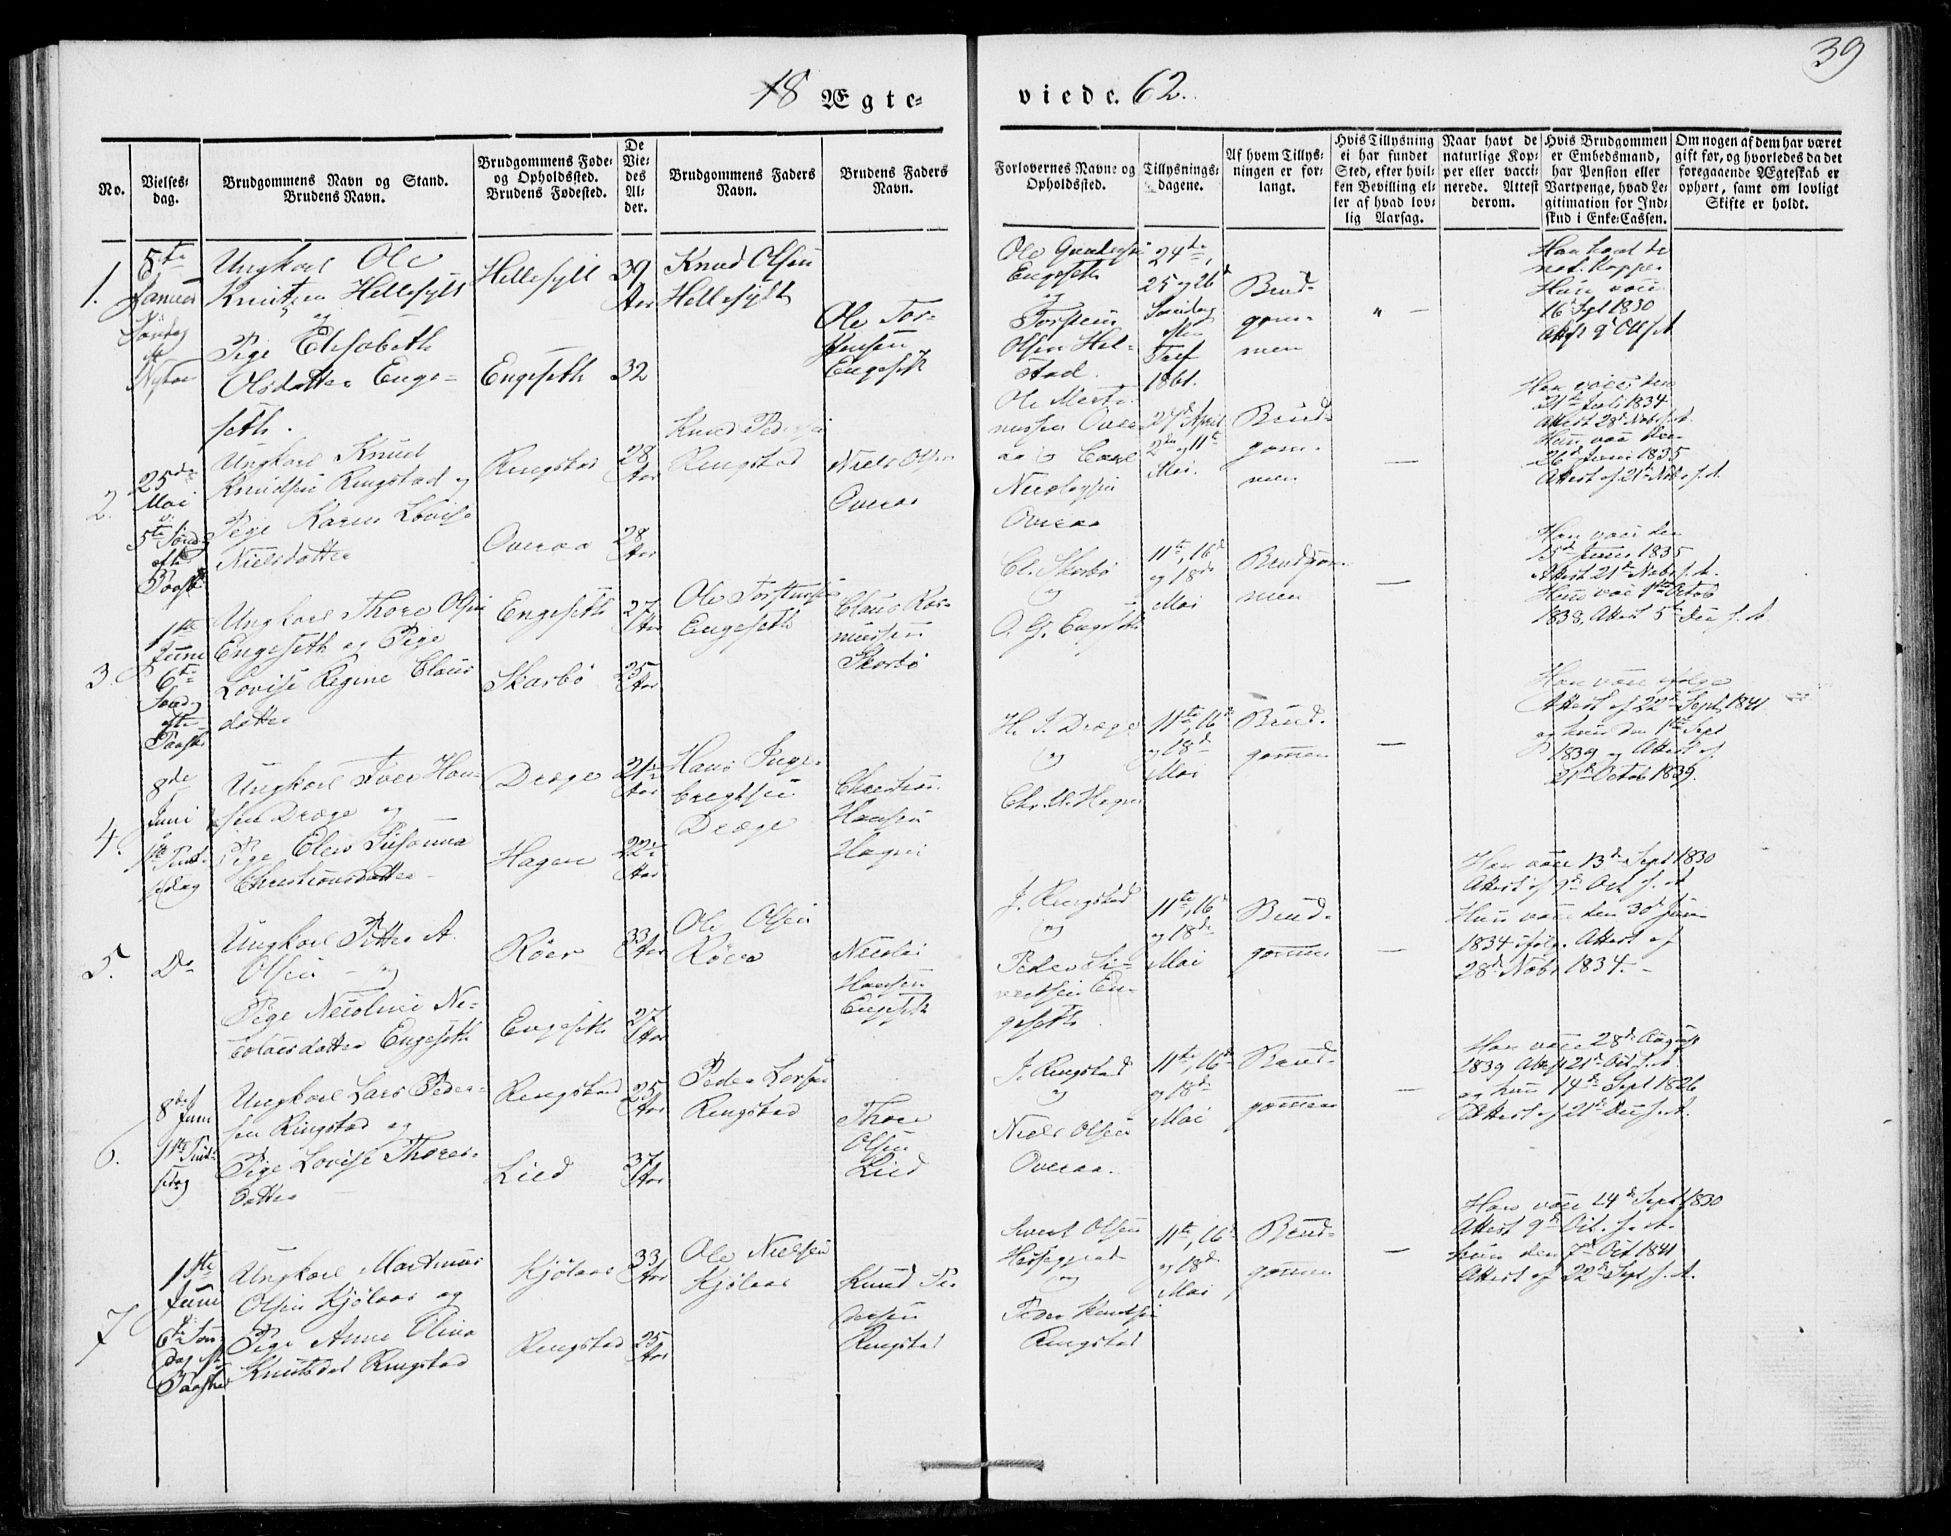 39
18 Ægte-
viede. 62.
No.
Vielses-
dag.
Brudgommens Navn og Stand.
Brudens Navn.
Brudgommens Føde-
og Opholdssted.
Brudens Fødested.
De
Vie-
des
Al-
der.
Brudgommens Faders
Navn.
Brudens Faders
Navn.
Forlovernes Navne og
Opholdssted.
Tillysnings-
dagene.
Af hvem Tillys-
ningen er for-
langt.
Hvis Tillysning
ei har fundet
Sted, efter hvil-
ken Bevilling el-
ler af hvad lov-
lig Aarsag.
Naar havt de
naturlige Kop-
per eller vacci-
nerede. Attest
derom.
Hvis Brudgommen
er Embedsmand,
har Pension eller
Vartpenge, hvad Le-
gitimation for Ind-
skud i Enke-Cassen.
Om nogen af dem har været
gift før, og hvorledes da det
foregaaende Ægteskab er
ophørt, samt om lovligt
Skifte er holdt.
1.
5te
Januar
Søndag
Nytaar
Ungkarl Ole
Knutzen Hellesylt
og
Pige Elisabeth
Olsdatter Enge-
seth.
Hellesylt
Engeseth
39
Aar
32
Knud Olsen
Hellesylt
Ole Tor-
stensen
Engeseth
Ole
Engeseth
og
Torsten
Olsen Hel-
stad.
24de,
25 og 26
Søndag
efter
Tref
1861.
Brud-
gom-
men
" —
Han havt de
nat. Kopper
Hun vacc
16de Sept 1830
Attest 9de Oct s. A
2.
25de
Mai
5te Sønd.
eft.
Paaske
Ungkarl Knud
Knudsen Ringstad og
Pige Karen Lovise
Nielsdatter
Ringstad
Overaa
28
Aar
28
Aar
Knud Pedersen
Ringstad
Niels Olsen
Overaa
Ole Marti-
nussen Over-
aa og
Nicolaysen
Overaa
27de April
2den og 11te
Mai.
Brud-
gom-
men
—
Han vacc den
21te Juli 1834
Attest 28de Nobr s. A
Hun vacc den
26de Juni 1835
Attest af 21de Nobr s. A.
3.
1ste
Juni
6te
Søndag
efter
Paaske
Ungkarl Thore Olsen
Engeseth og Pige
Lovise Regine Claus
datter
Engeseth
Skarbø
27
Aar
25
Aar
Ole Torstensen
Engeseth
Claus Ras-
mussen
Skarbø
Cl. Skarbø
og
O. G. Engeseth
11te, 16de
og 18de
Mai
Brudgom-
men
—
Han vacc den
1835
Attest 21de Nobr s. A.
Hun vac 1ste Octob
1838, Attest 5te Dec s. A
4.
8de
Juni
1ste Pint-
sedag
Ungkarl Iver Han-
sen Dræge og
Pige Elen Susanna
Christiansdatter
Dræge
Hagen
21
Aar
22
Aar
Hans Inge-
bregtsen
Dræge
Christian
Hansen
Hagen
H. I. Dræge
og
Chr. H. Hagen
11te, 16de
og 18de
Mai
Brud-
gommen
—
Han vacc ifølge
Attest af 22de Sept 1841
og hun den 1ste Sept
1839 og Attest af
21de Octob 1839.
5.
Do
Ungkarl Petter A.
Olsen og
Pige Nicoline Ni-
colaisdatter Engeseth
Røer
Engeseth
33
Aar
27
Aar
Ole Olsen
Røer
Nicolai
Hansen
Engeseth
J. Ringstad
og
Peder Si-
vertsen En-
geseth
11te, 16
og 18de
Mai
Brud-
gommen
—
Han vacc 13de Sept 1830
Attest af 9de Oct s. A
Hun vacc den 30de Juni
1834 ifølg. Attest af
28de Nobr 1834.
6.
8de
Juni
1ste Pint-
sedag
Ungkarl Lars Peder-
sen Ringstad og
Pige Lovise Thores-
datter
Ringstad
Lied
25
Aar
37
Aar
Peder Larsen
Ringstad
Thore
Olsen
Lied
J. Ringstad
og
Niels Olsen
Overaa.
11te, 16de
og 18de
Mai
Brud-
gommen
—
Han vacc 28de August
1839 Attest 21de Oct s. A.
og hun 14de Sept 1826
Attest af 21de Dec s. A.
7
1ste
Juni
6te Søn
dag eft.
Paaske
Ungkarl Martinus
Olsen Kjølaas og
Pige Anne Olina
Knutsdat Ringstad
Kjølaas
Ringstad
33
Aar
25
Aar
Ole Nielsen
Kjølaas
Knud Pe-
dersen
Ringstad
Sivert Olsen
og
Peder Knudsen
Ringstad
11te, 16de
og 18de
Mai
Brud-
gommen
—
Han vacc 14de Sept 1830
Attest 9de Oct. s. A.
hun den 7de Oct 1841
Attest af 22de Sept s. A.